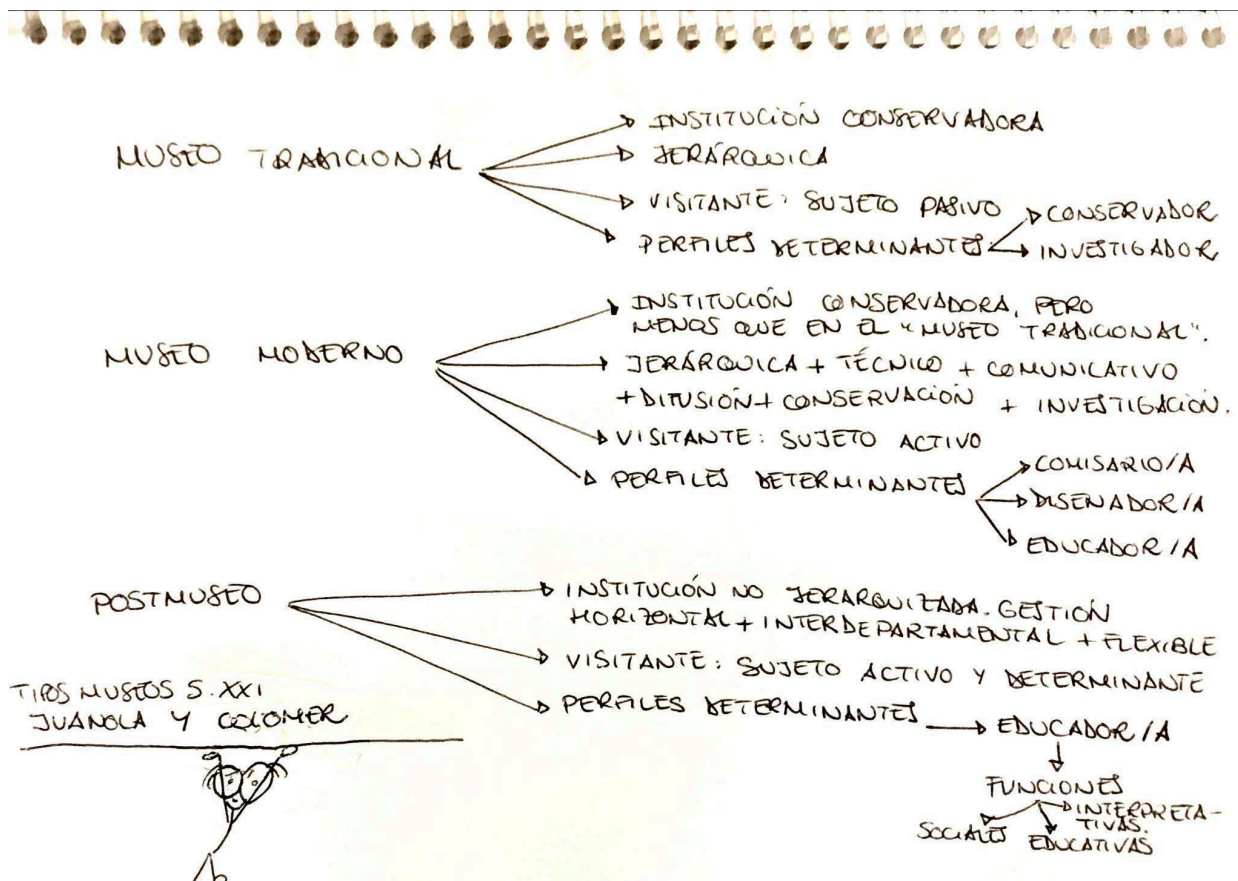 MUSEO TRADICIONAL
INSTITUCIÓN CONSERVADORA
JERÁRQUICA
VISITANTE: SUJETO PASIVO
PERFILES DETERMINANTES
CONSERVADOR
INVESTIGADOR
MUSEO MODERNO
INSTITUCIÓN CONSERVADORA, PERO
MENOS QUE EN EL "MUSEO TRADICIONAL".
JERÁRQUICA + TÉCNICO + COMUNICATIVO
+ DIFUSIÓN + CONSERVACIÓN + INVESTIGACIÓN.
VISITANTE: SUJETO ACTIVO
PERFILES DETERMINANTES
COMISARIO/A
DISEÑADOR/A
EDUCADOR/A
POSTMUSEO
INSTITUCIÓN NO JERARQUIZADA. GESTIÓN
HORIZONTAL + INTERDEPARTAMENTAL + FLEXIBLE
VISITANTE: SUJETO ACTIVO Y DETERMINANTE
PERFILES DETERMINANTES
EDUCADOR/A
FUNCIONES
INTERPRETA-
TIVAS.
SOCIALES
EDUCATIVAS
TIPOS MUSEOS S.XXI
JUANOLA Y COLOMER